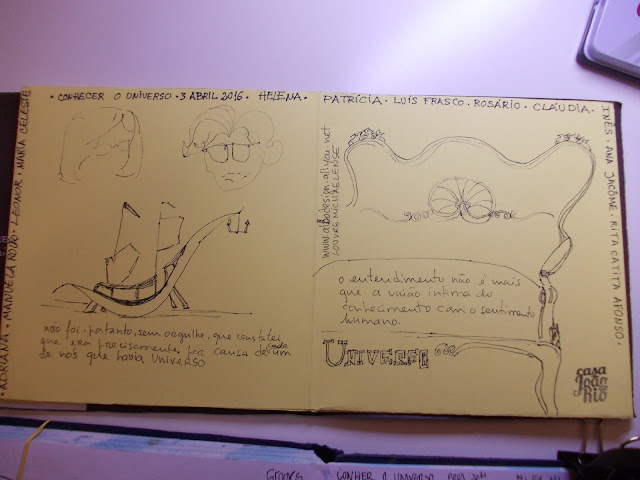 ADRIANA · MANUELA ROLÃO · LEONOR · MARIA CELESTE
· CONHECER O UNIVERSO · 3 ABRIL 2016 · HELENA ·
PATRÍCIA · LUÍS FRASCO · ROSÁRIO · CLÁUDIA ·
INÊS · ANA JACÔME · RITA CATITA AFONSO ·
não foi, portanto, sem orgulho, que constatei
que era precisamente por causa de cada um
de nós que havia UNIVERSO
LOUVRE MICHAELENSE
o entendimento não é mais
que a união íntima do
conhecimento com o sentimento
humano.
UNIVERSO
casa
João
do
Rio